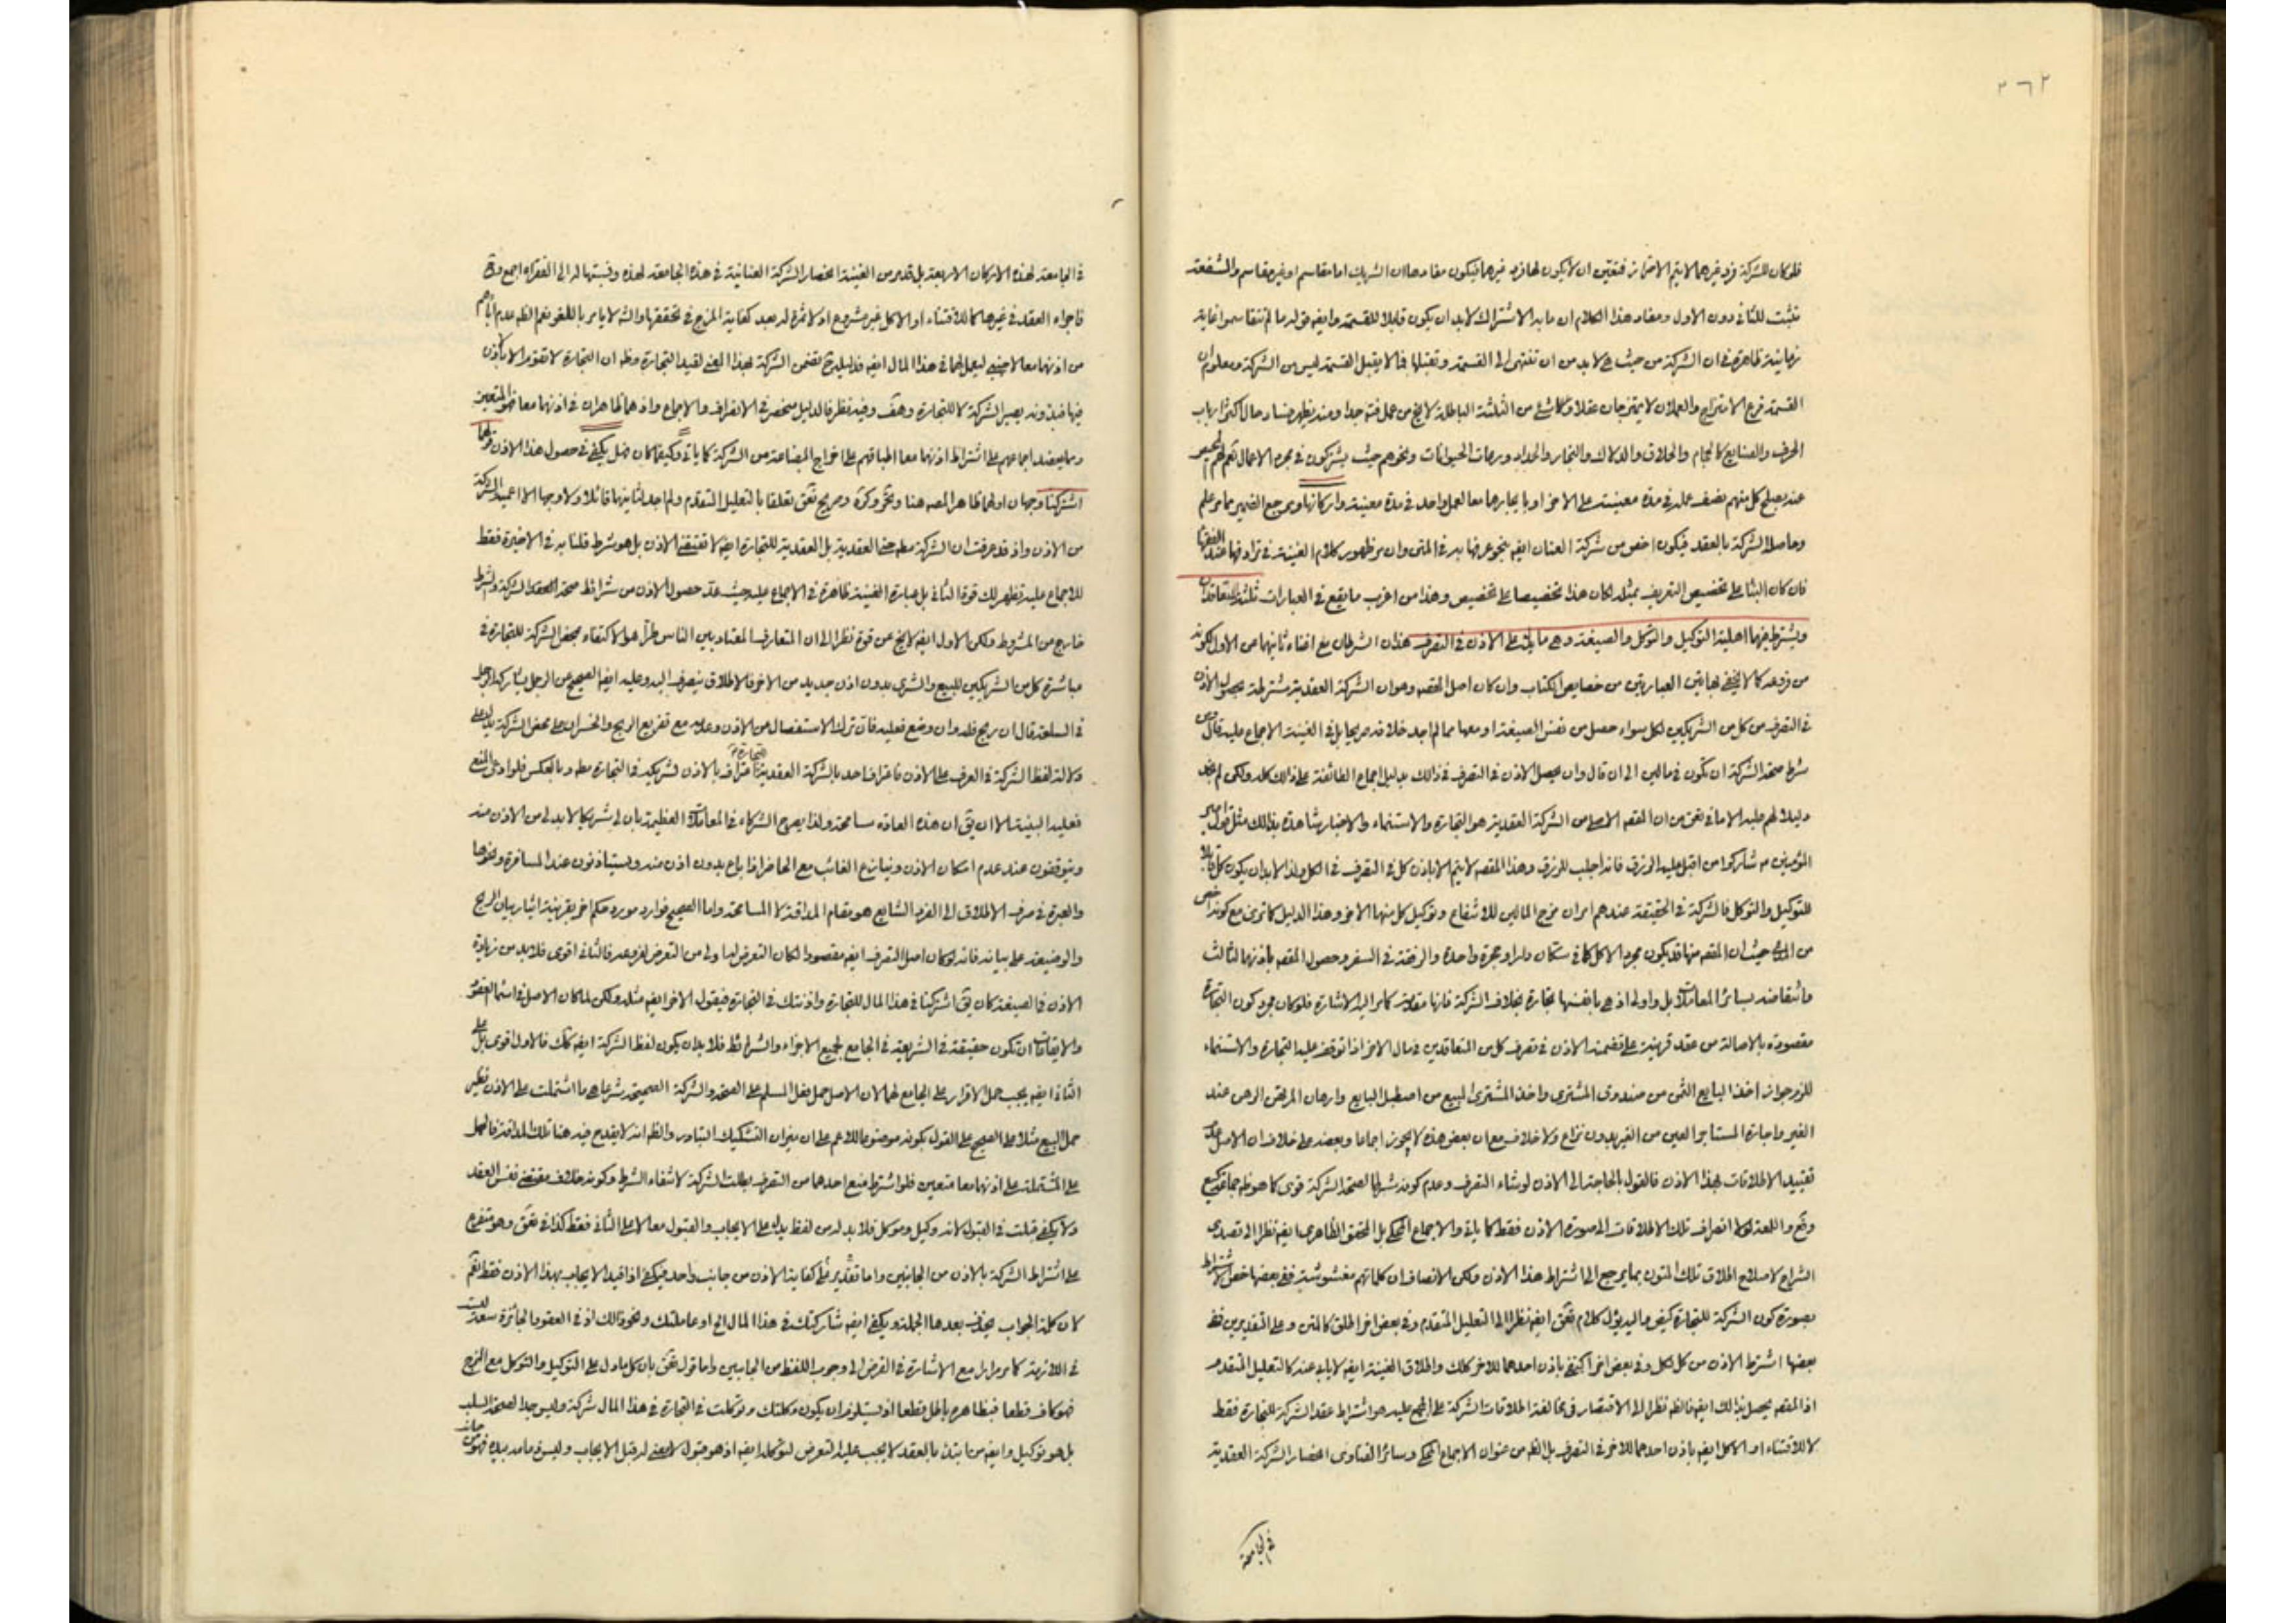 ٢٦٢
فلو كان للشركة فرد غيرهما لا يتم الاحتراز فتعين ان لا يكون لها فرد غيرهما فيكون مفادها ان الشريك اما مقاسم او غير مقاسم والشفعة
تثبت للثاني دون الاول ومفاد هذا الكلام ان ما به الاشتراك لا بد ان يكون قابلا للقسمة وايضه قوله ما لم يتقاسموا غاية
زمانية ظاهرة في ان الشركة من حيث هي لا بد من ان تنتهى الى القسمة وتقبلها فما لا يقبل القسمة ليس من الشركة ومعلوم ان
القسمة فرع الامتزاج والعملان لا يمتزجان عقلا وكل شئ من الثلثة الباطلة لا يخ من عمل فتم جدا ومنه يظهر فساد حال اكثر ارباب
الحرف والصنايع كالحجام والحلاق والدلاك والنجار والحداد ونحوهم حيث يشتركون في مجرد الاعمال نعم لهم
عنه يصلح كل منهم نصف عمله في مدة معينة على الاخر او با يجارهما معا لعمل واحد في مدة معينة واركانها ومرجع الضمير مما مر علم
وحاصلا الشركة بالعقد فيكون اخص من شركة العنان ايضه بنحو عرفها به في المتن وان مر ظهور كلام الغنية في ترادفها عند الفقهاء
فان كان البناء على تخصيص التعريف بمثله لكان هذا تخصيصا على تخصيص وهذا من اغرب ما يقع في العبارات ثلثة المتعاقدان
ويشترط فيهما اهلية التوكيل والتوكل والصيغة وهى ما يدل على الاذن في التصرف هذان الشرطان مع اغناء ثانيهما عن الاول لكونه
من فروعه كما لا يخفى بهاتين العبارتين من خصايص الكتاب وان كان اصل المقصد وهو ان الشركة العقدية مشترطة بحصول الاذن
في التصرف من كل من الشريكين لكل سواء حصل من نفس الصيغة او معها مما لم اجد خلافه صريحا بل في الغنية الاجماع عليه قال من
شرط صحة الشركة ان تكون في مالين الى ان قال وان يحصل الاذن في التصرف في ذالك بدليل اجماع الطائفة على ذالك كله ولكن لم نجد
دليلا لهم عليه الا ما في تحق من ان المقصد الاصلى من الشركة العقدية هو التجارة والاستنماء والاخبار شاهدة بذالك مثل قول امير
المؤمنين ع شاركوا من اقبل عليه الرزق فانه اجلب للرزق وهذا المقصد لا يتم الا باذن كل في التصرف في الكل ولذا لا بد ان يكون كل قابلا
للتوكيل والتوكل فالشركة في الحقيقة عندهم امران مزج المالين للاشفاع وتوكيل كل منهما الاخر وهذا الدليل كما ترى مع كونه اخص
من المدعى حيث ان المقصد منها قد يكون مجرد الاكل كما في سكان دار او حجرة واحدة والرفقة في السفر وحصول المقصد باذنهما لثالث
ما نتقاضه بسائر المعاملات بل واولى اذ هي بانفسها تجارة بخلاف الشركة فانها مقدمة كما مر اليه الاشارة فلو كان مجرد كون التجارة
مقصودة بالاصالة من عقد قرينة على تضمنه الاذن في تصرف كل من المتعاقدين في مال الاخر اذا توقف عليه التجارة والاستنماء
للزم جواز اخذ البايع الثمن من صندوق المشترى واخذ المشترى المبيع من اصطبل البايع وارهان المرتهن الرهن عند
الغير واجارة المستاجر العين من الغير بدون نزاع ولا خلاف مع ان بعض هذه لا يجوز اجماعا وبعضه على خلاف ان الاصل عدم
تقييد الاطلاقات بهذا الاذن فالقول بالحاجة الى الاذن لو شاء التصرف وعدم كونه شرطا لصحة الشركة قوى كما هو ظه
وقع واللمعة لولا انصراف تلك الاطلاقات الى صورة الاذن فقط كما ياتى والاجماع المحكى بل المحقق الظاهرى ايضه نظرا الى تصدى
الشراح لاصلاح اطلاق تلك المتون بما يرجع الى اشتراط هذا الاذن ولكن الانصاف ان كلماتهم مغشوشة ففى بعضها خص الاشتراط
بصورة كون الشركة للتجارة كيض واليه يؤل كلام تحق ايضه نظرا الى التعليل المتقدم وفى بعض اخر اطلق كالمتن وعلى التقديرين ففى
بعضها اشترط الاذن من كل لكل وفى بعض اخر اكتفى باذن احدهما للاخر كلك واطلاق الغنية ايضه لا يابى عنه كالتعليل المتقدم
اذ المقصد يحصل بذالك ايضه فالظه نظرا الى الاقتصار في مخالفة اطلاقات الشركة على المجمع عليه هو اشتراط عقد الشركة للتجارة فقط
لا للاقتناء او الاكل ايضه باذن احدهما للاخر في التصرف بل الظه من عنوان الاجماع المحكى وسائر الفتاوى انحصار الشركة العقدية
في الجامعة
في الجامعة لهذه الاركان الاربعة بل قد مر من الغنية انحصار الشركة العنانية في هذه الجامعة لهذه ونسبتها له الى الفقهاء اجمع وقع
فاجراء العقد في غيرها كما للاقتناء او الاكل غير مشروع اذ لا ثمرة له بعد كفاية المزج في تحققها والشه لا يامر باللغو نعم الظه عدم اباهم
من اذنهما معا لاجنبى ليعمل لهما في هذا المال ايضه فدليله تضمن الشركة بهذا المعنى لقيد التجارة وظه ان التجارة لا تقوم الا بالاذن
فيها فبدونه يصير الشركة لا للتجارة وهف وفيه نظر فالدليل منحصر في الانصراف والاجماع واذ هما ظاهران في اذنهما معا فهو المتعين
ومما يعضد اجماعهم على اشتراط اذنهما معا اطباقهم على اخراج البضاعة من الشركة كما ياتى وكيفما كان فهل يكفى في حصول هذا الاذن قولهما
اشتركنا وجهان اولهما ظاهر المصه هنا وتحر وكره وصريح تحق تعلقا بالتعليل المتقدم ولم اجد لثانيهما قائلا ولا وجها الا اعمية الشركة
من الاذن واذ قد عرفت ان الشركة مطه حتى العقدية بل العقدية للتجارة ايضه لا تقتضى الاذن بل هو شرط قلنا به في الاخيرة فقط
للاجماع عليه فيظهر لك قوة الثانى بل عبارة الغنية ظاهرة في الاجماع عليه حيث عد حصول الاذن من شرائط صحة عقد الشركة والشرط
خارج من المشروط ولكن الاول ايضه لا يخ عن قوة نظرا الى ان المتعارف المعتاد بين الناس طرا هو الاكتفاء بمحض الشركة للتجارة في
مباشرة كل من الشريكين للبيع والشرى بدون اذن جديد من الاخر فالاطلاق ينصرف اليه وعليه ايضه الصحيح عن الرجل يشاركه الرجل
في السلعة قال ان ربح فله وان وضع فعليه فان ترك الاستفصال من الاذن وعدمه مع تفريع الربح والخسران على محض الشركة يدل على
دلالة لفظ الشركة في العرف على الاذن فاعتراف احد بالشركة العقدية للتجارة اعتراف بالاذن لشريكه في التجارة مطه وبالعكس فلو ادعى المنع
فعليه البينة الا ان يق ان هذه العادة مسامحة ولذا يصرح الشركاء في المعاملات العظيمة بان لى شريكا لا بد لى من الاذن منه
ويتوقفون عند عدم امكان الاذن وينازع الغائب مع الحاضر اذا باع بدون اذن منه ويستاذنون عند المسافرة ونحوها
والعبرة في صرف الاطلاق الى الفرد الشايع هو مقام المداقة لا المسامحة واما الصحيح فوارد مورد حكم اخر بقرينة ايثار بيان الربح
والوضيعة على بيانه فانه لو كان اصل التصرف ايضه مقصودا لكان التعرض لها اولى من التعرض لفروعه فالثانى اقوى فلا بد من زيادة
الاذن في الصيغة كان يق اشتركنا في هذا المال للتجارة واذنتك في التجارة فيقول الاخر ايضه مثله ولكن لما كان الاصل في اسماء العقود
والايقاعات ان تكون حقيقة في الشريعة في الجامع لجميع الاجزاء والشرائط فلا بد ان يكون لفظ الشركة ايضه كلك فالاول اقوى بل على
الثانى ايضه يجب حمل الاقرار على الجامع لهما لان الاصل حمل فعل المسلم على الصحة والشركة الصحيحة شرعا هى ما اشتملت على الاذن نظير
حمل البيع مثلا على الصحيح على القول بكونه موضوعا للاعم على ان ميزان التشكيك التبادر والظه انه لا يقدح فيه هنا تلك المداقة فالحمل
على المشتملة على اذنهما معا متعين فلو اشترط منع احدهما من التصرف بطلت الشركة لانتفاء الشرط وكونه خلاف مقتضى نفس العقد
ولا يكفى قبلت في القبول لانه وكيل وموكل فلا بد له من لفظ يدل على الايجاب والقبول معا لا على الثانى فقط كذا في تحق وهو متفرع
على اشتراط الشركة بالاذن من الجانبين واما تقدير كفاية الاذن من جانب واحد فيكفى اذا قيد الايجاب بهذا الاذن فقط نعم
كان كلمة الجواب بعدها الجملة ويكفى ايضه شاركتك في هذا المال الخ او عاملتك ونحو ذالك اذ في العقود الجائزة سعة ليست
في اللازمة كما مر مرارا مع الاشارة في القرض الى وجوب اللفظ من الجانبين واما قول تحق بان كل ما دل على التوكيل والتوكل مع المزج
فهو كاف قطعا فبظاهره باطل قطعا اذ يستلزم ان يكون وكلتك وتوكلت في التجارة في هذا المال شركة وليس جدا لصحة السلب
بل هو توكيل وايضه من ابتدأ بالعقد لا يجب عليه التعرض لتوكله ايضه اذ هو قبول لا معنى له قبل الايجاب